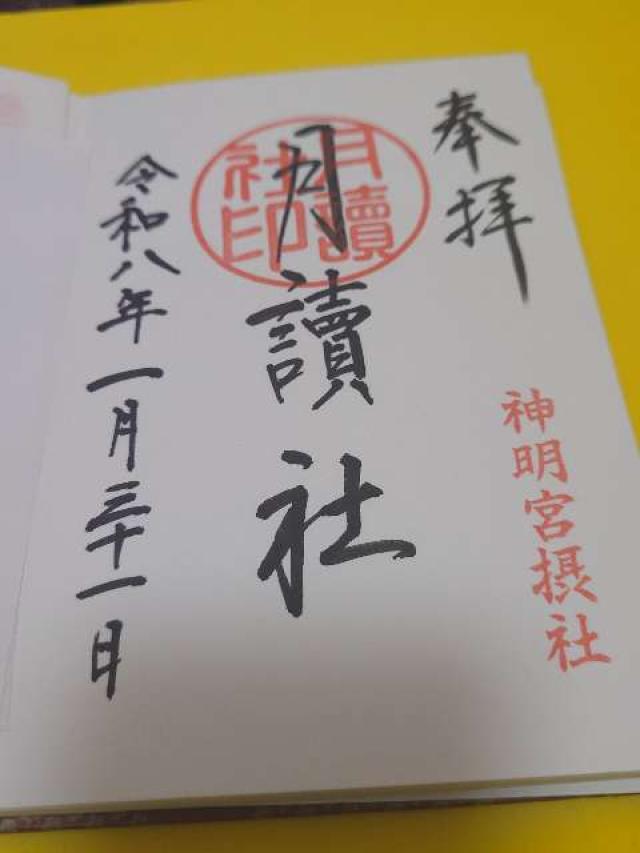 奉拝
神明宮摂社
月讀社
月讀社印
令和八年一月三十一日